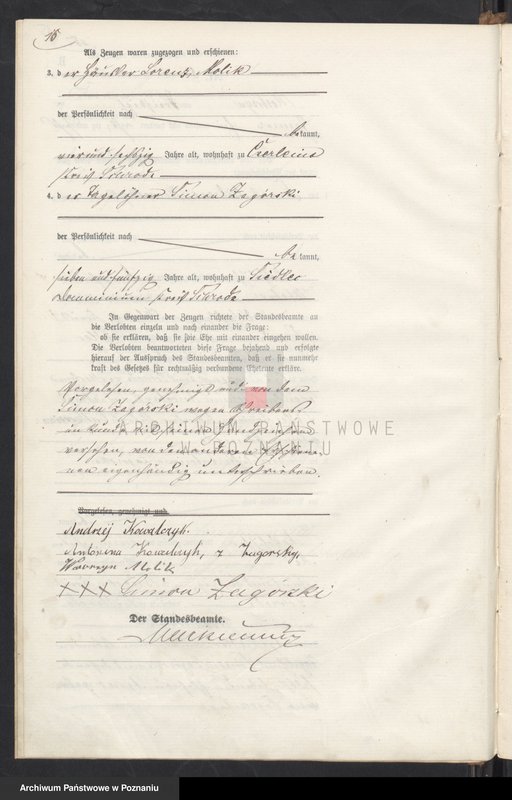 16
Als Zeugen waren zugezogen und erschienen:
3. der Häusler Lorenz Molik
der Persönlichkeit nach
bekannt,
vier und sechzig Jahre alt, wohnhaft zu Czerleino
Kreis Schroda
4. der Tagelöhner Simon Zagórski
der Persönlichkeit nach
bekannt,
sieben und fünfzig Jahre alt, wohnhaft zu Siedlec
Dominium, Kreis Schroda
In Gegenwart der Zeugen richtete der Standesbeamte an
die Verlobten einzeln und nach einander die Frage:
ob sie erklären, daß sie die Ehe mit einander eingehen wollen.
Die Verlobten beantworteten diese Frage bejahend und erfolgte
hierauf der Ausspruch des Standesbeamten, daß er sie nunmehr
kraft des Gesetzes für rechtmäßig verbundene Eheleute erkläre.
Vorgelesen, genehmigt und von dem
Simon Zagórski wegen Schreibens
unkunde mit seinem Handzeichen
versehen, von den anderen
eigenhändig unterschrieben.
ARCHIWUM PAŃSTWOWE
W POZNANIU
Vorgelesen, genehmigt und
Andrzej Kowalczyk.
Antonina Kowalczyk, z Zagorsky,
Wawrzyn Molik
+++ Simon Zagórski
Der Standesbeamte.
Archiwum Państwowe w Poznaniu